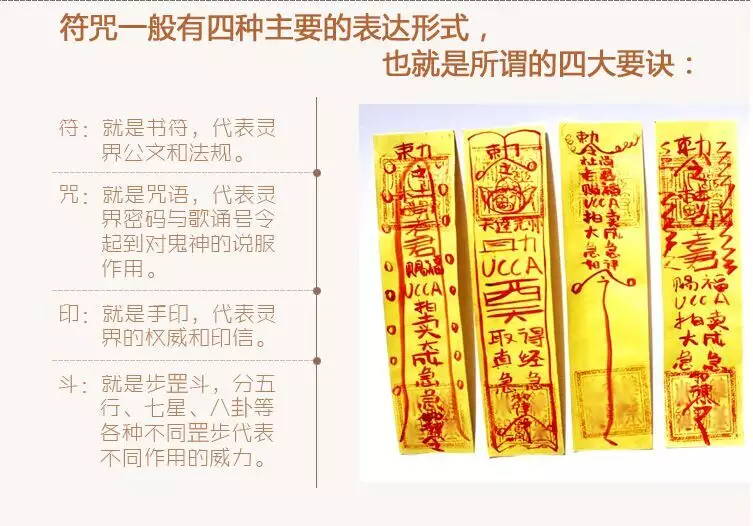 符咒一般有四种主要的表达形式，
也就是所谓的四大要诀：
符：就是书符，代表灵
界公文和法规。
咒：就是咒语，代表灵
界密码与歌诵号令
起到对鬼神的说服
作用。
印：就是手印，代表灵
界的权威和印信。
斗：就是步罡斗，分五
行、七星、八卦等
各种不同罡步代表
不同作用的威力。
敕
令
老君
赐福
UCCA
拍卖大成
急急
敕
令
UCCA
西天
取得
真经
急急
敕
令
赐福
UCCA
拍卖
大成
急急
敕
令
老君
赐福
UCCA
拍卖
大成
急急